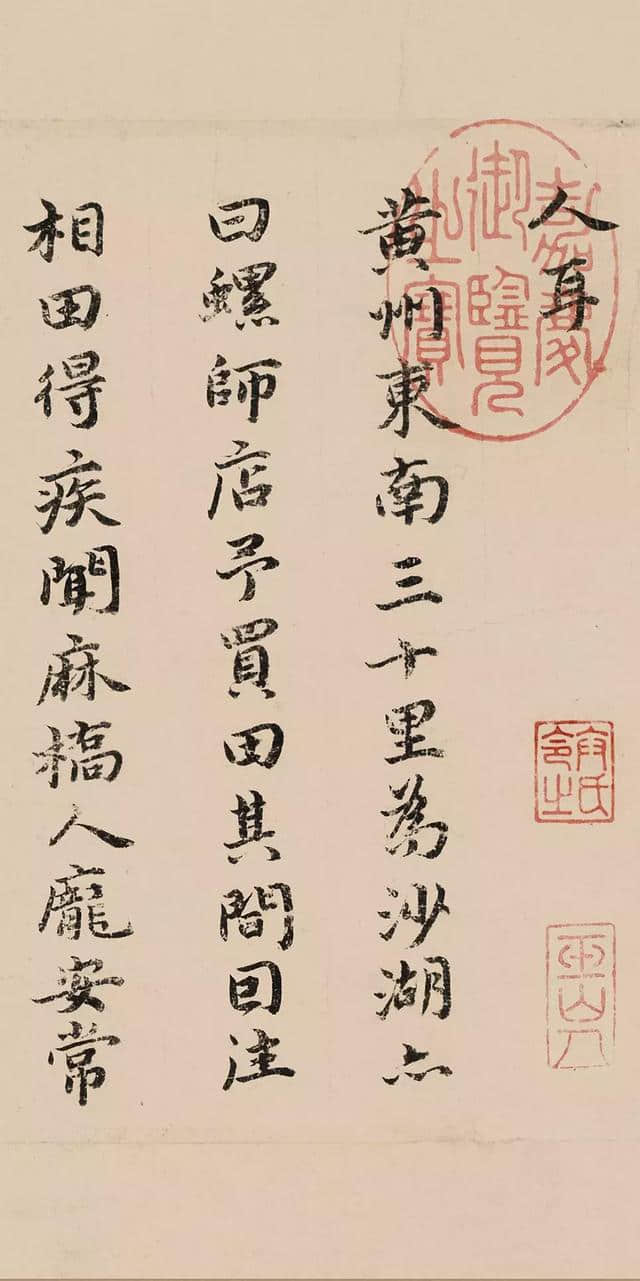 人耳
黃州東南三十里為沙湖亦
曰螺師店予買田其間因往
相田得疾聞麻橋人龐安常
嘉慶
御覽
之寶